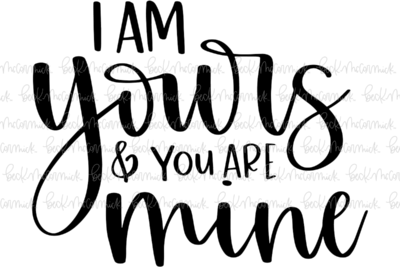 I AM
yours
& YOU ARE
mine